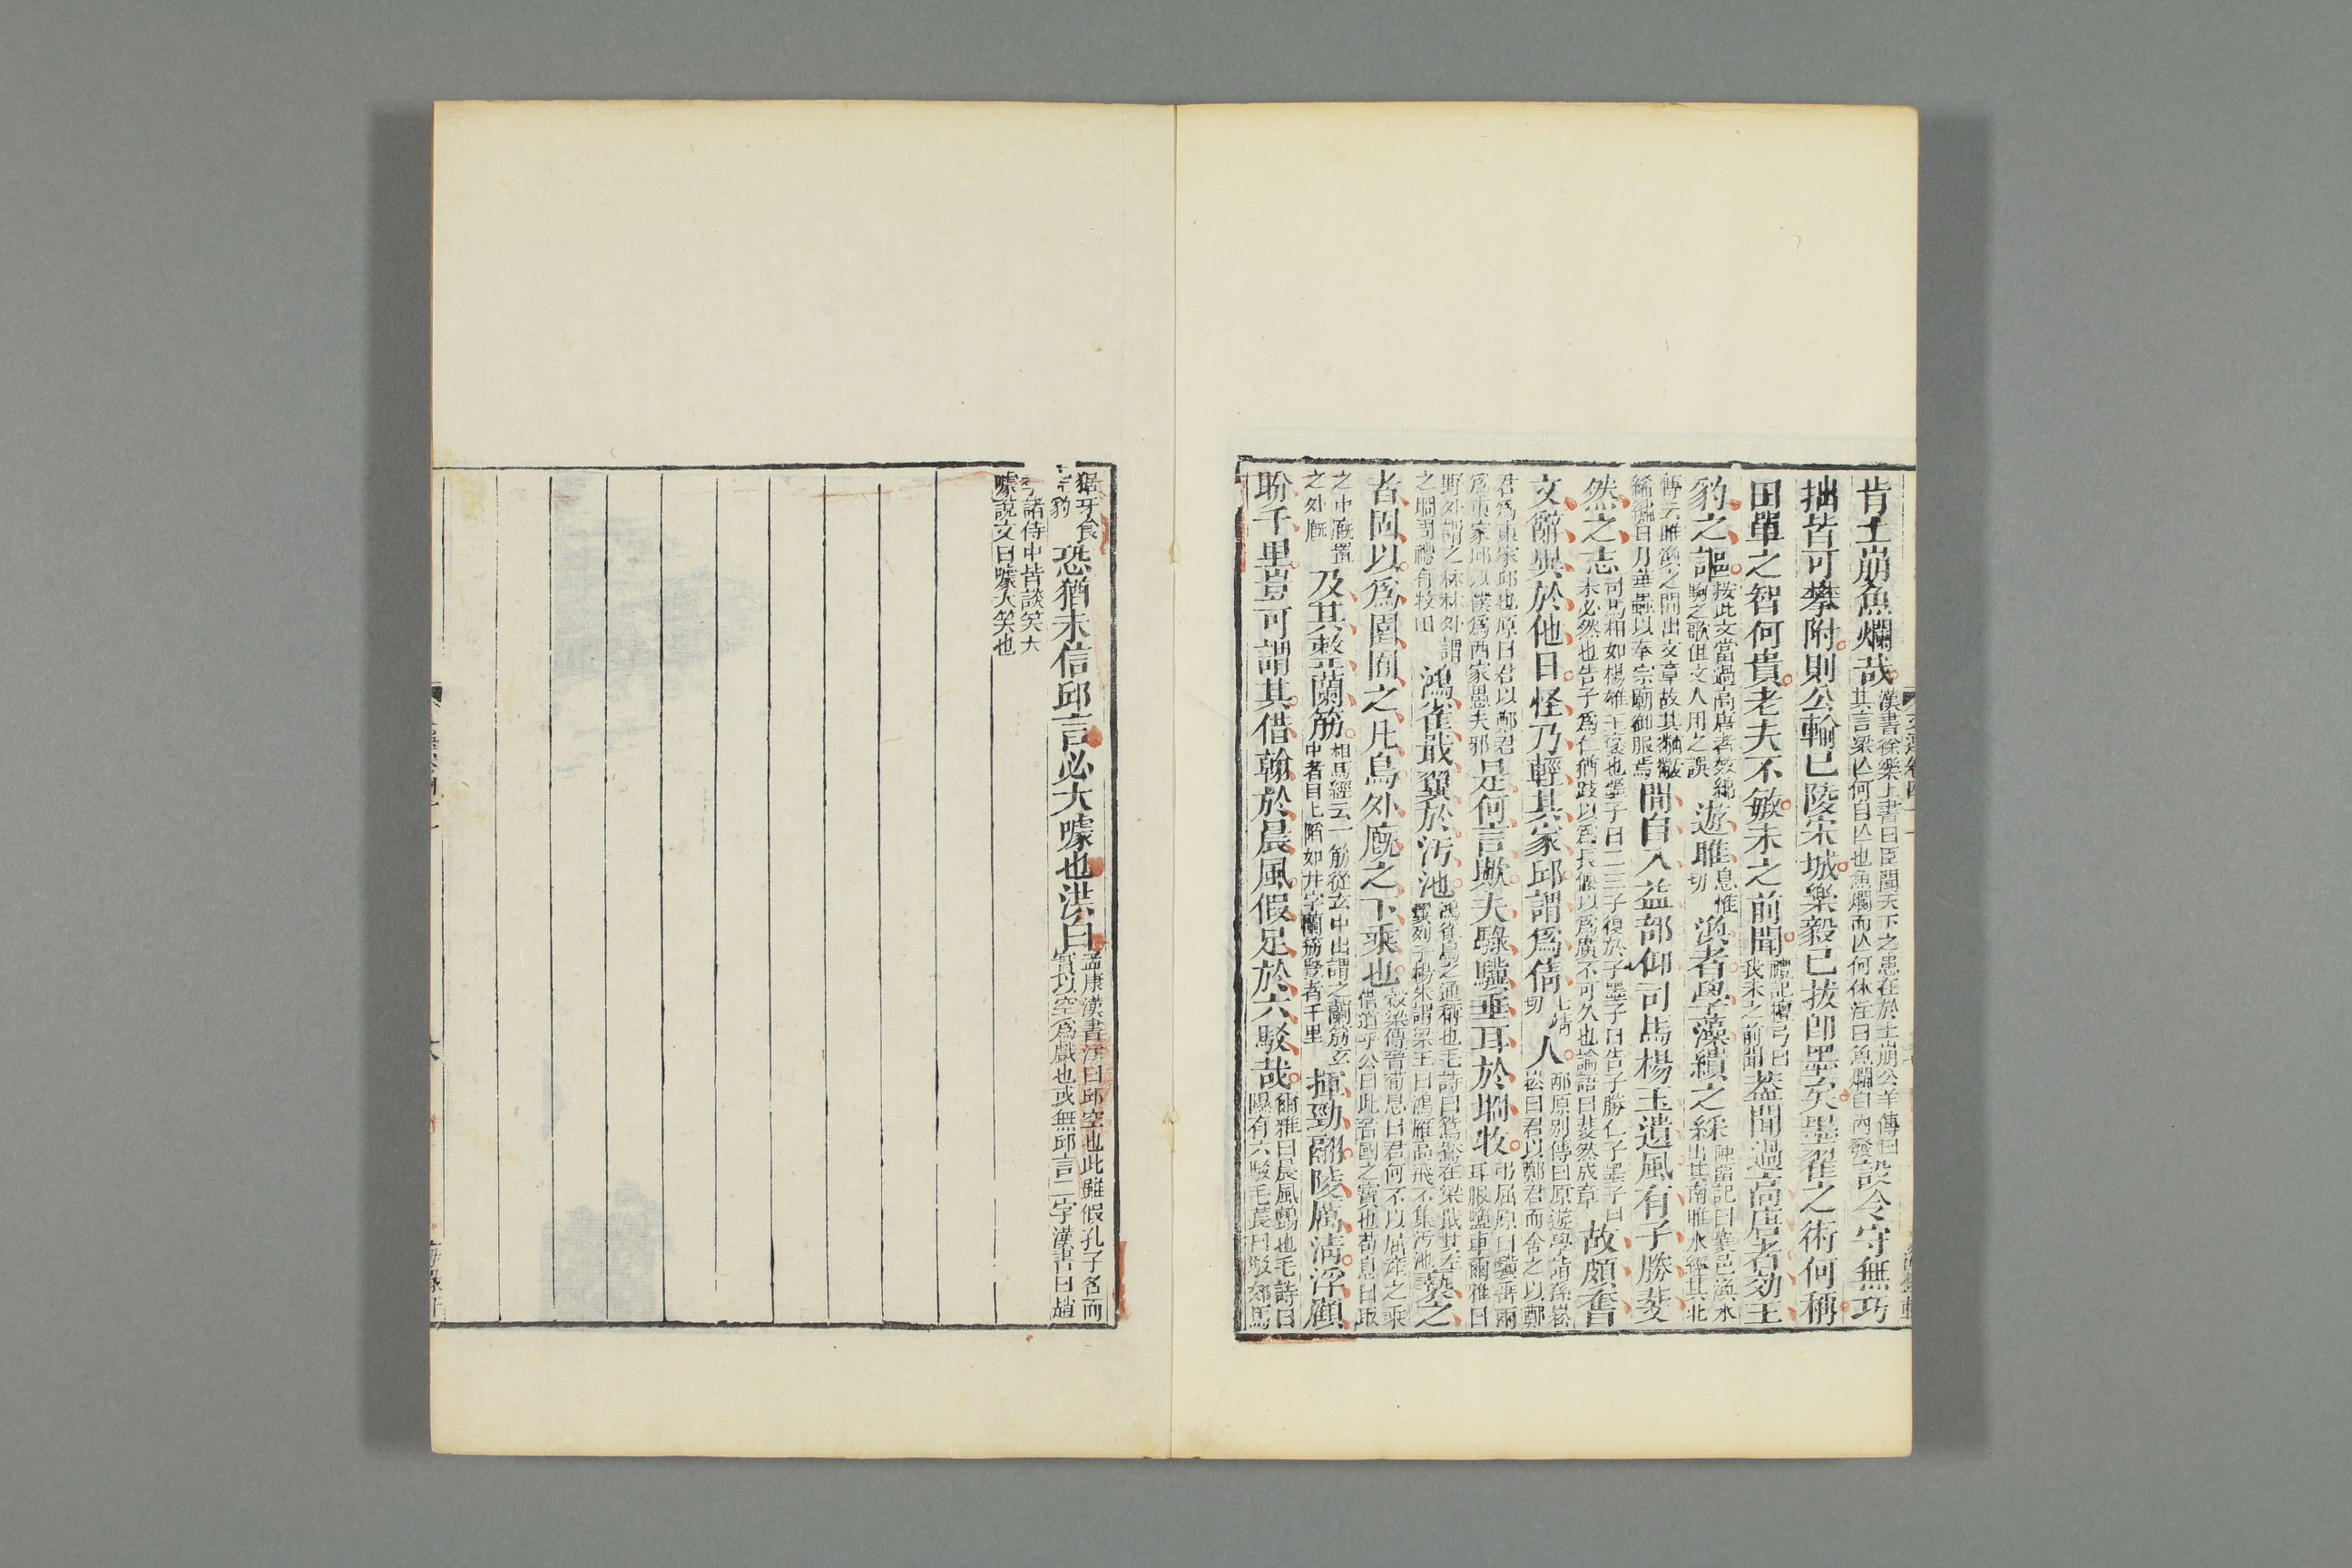 肯土崩魚爛哉漢書徐樂上書曰臣聞天下之患在於土崩公羊傳曰其言梁亡何自亡也魚爛而亡何休注曰魚爛自內發設令守無巧
拙皆可攀附則公輸已陵宋城樂毅已拔卽墨矣墨翟之術何稱
田單之智何貴老夫不敏未之前聞禮記檀弓曰我未之前聞蓋聞過高唐者効王
豹之謳按此文當過高唐者效緜駒之歌但文人用之誤遊睢息惟切渙者學藻繢之綵陳留記曰襄邑渙水出其南睢水經其北
傳云睢渙之間出文章故其黼黻絺繡日月華蟲以奉宗廟御服焉間自入益部仰司馬楊王遺風有子勝斐
然之志司馬相如楊雄王襃也墨子曰二三子復於子墨子曰告子勝仁子墨子曰未必然也告子爲仁猶跂以爲長偃以爲廣不可久也論語曰斐然成章故頗奮
文辭異於他日怪乃輕其家邱謂爲倩七靖切人邴原別傳曰原遊學詣孫崧崧曰君以鄭君而舍之以鄭
君爲東家邱也原曰君以鄭君爲東家邱以僕爲西家愚夫邪是何言歟夫騄驥垂耳於坰牧弔屈原曰驥垂兩耳服鹽車爾雅曰
野外謂之林林外謂之坰周禮有牧田鴻雀戢翼於汚池鴻雀鳥之通稱也毛詩曰鴛鴦在梁戢其左翼列子楊朱謂梁王曰鴻雁高飛不集汚池褻之
者固以爲園囿之凡鳥外廐之下乘也穀梁傳晉荀息曰君何不以屈產之乘借道乎公曰此吾國之寶也荀息曰取
之中廐置之外廐及其整蘭筋相馬經云一筋從玄中出謂之蘭筋玄中者目上陷如井字蘭筋豎者千里揮勁翮陵厲淸浮顧
盼千里豈可謂其借翰於晨風假足於六駮哉爾雅曰晨風鸇也毛詩曰隰有六駮毛萇曰駮如馬
倨牙食虎豹恐猶未信邱言必大噱也洪白孟康漢書注曰邱空也此雖假孔子名而實以空爲戲也或無邱言二字漢書曰趙
李諸侍中皆談笑大噱說文曰噱大笑也